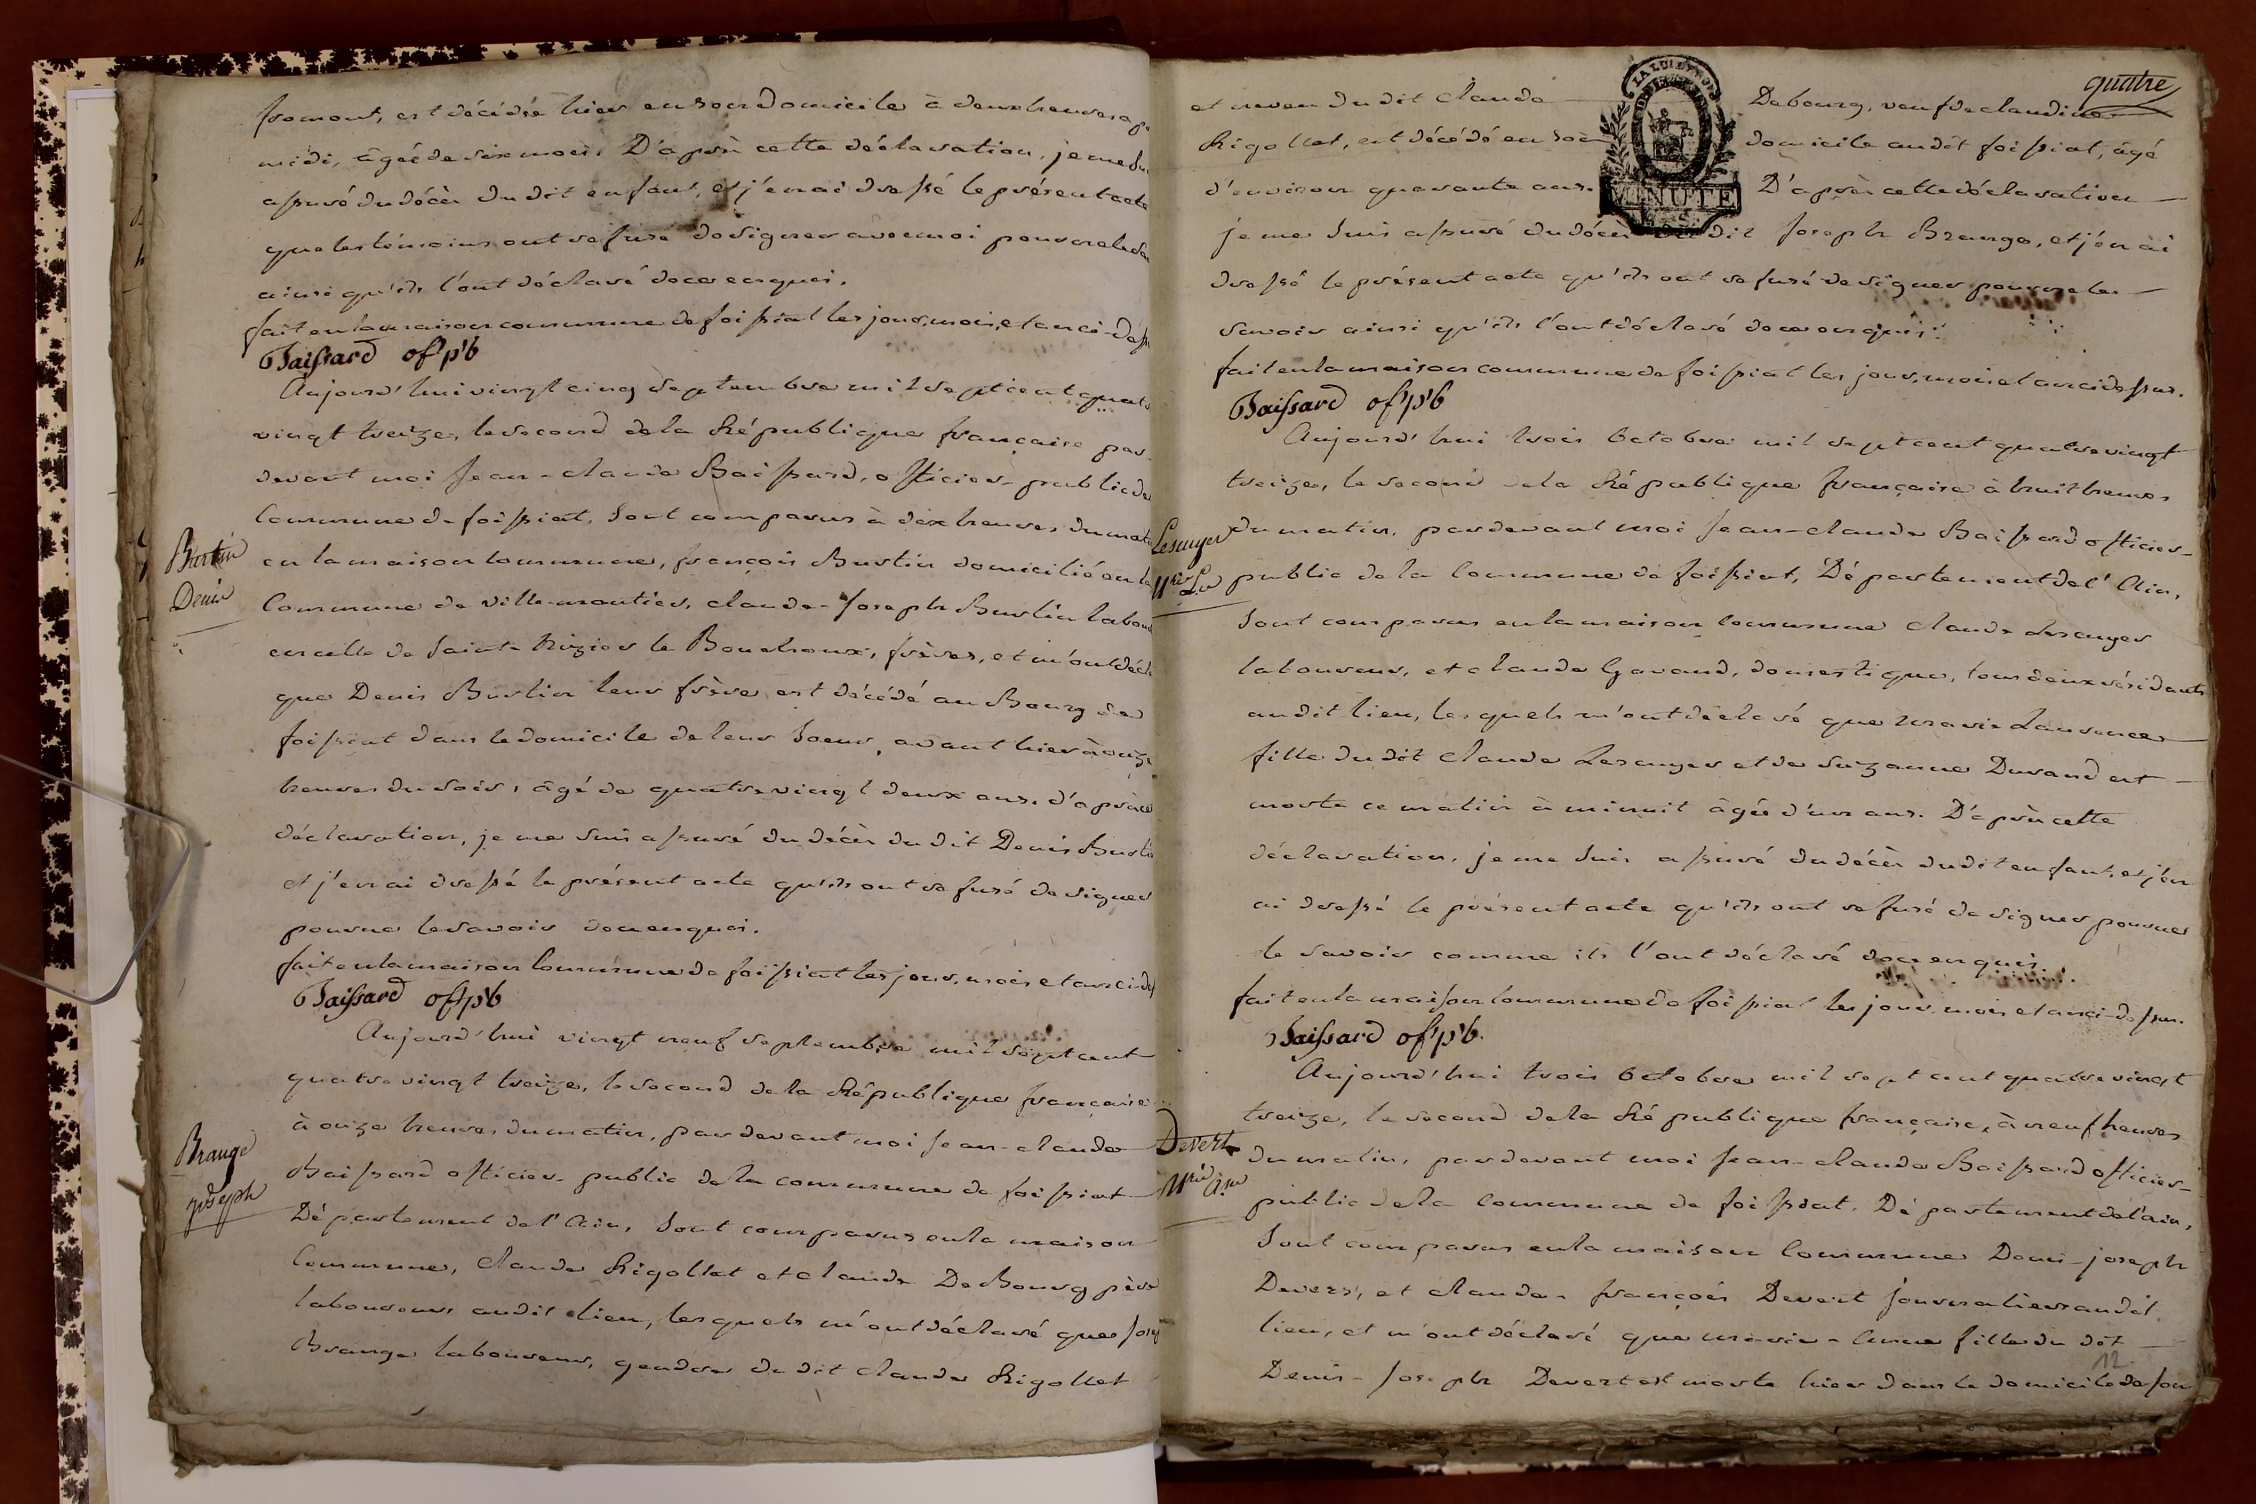 fromont, est décédée hier en son domicile à deux heures ap
midi, âgée de six mois. D'après cette déclaration, je me su
assuré du décès du dit enfant, et j'en ai dressé le présent acte
que les témoins ont refusé de signer avec moi pour ne le sa
ainsi qu'ils l'ont déclaré de ce enquis.
fait en la maison commune de foissiat les jour, mois, et an ci-dess
Baissard of. p'b
Aujourd'hui vingt cinq septembre mil sept cent quatre
vingt treize, le second de la République française par-
devant moi Jean-claude Baissard, officier-public de
Commune de foissiat, sont comparus à dix heures du mati
Burtin
Denis
en la maison commune, françois Burtin domicilié en la
Commune de Villemoutier, claude-Joseph Burtin labou
en celle de Saint Nizier le Bouchoux, frères, et m'ont décl
que Denis Burtin leur frère est décédé au Bourg de
foissiat dans le domicile de leur Soeur, avant hier à onze
heures du soir, âgé de quatre vingt deux ans. d'après ce
déclaration, je me suis assuré du décès du dit Denis Burti
et j'en ai dressé le présent acte qu'ils ont refusé de signer
pour ne le savoir de ce enquis.
fait en la maison Commune de foissiat les jour, mois et an ci-des
Baissard of. p'b
Aujourd'hui vingt neuf septembre mil sept cent
quatre vingt treize, le second de la République française
à onze heures du matin, par devant moi Jean-claude
Brange
joseph
Baissard officier-public de la commune de foissiat
Département de l'Ain, sont comparus en la maison
Commune, Claude Rigollet et claude DeBourg père
laboureurs audit lieu, lesquels m'ont déclaré que Josep
Brange laboureur, gendre du dit claude Rigollet
quatre
et neveu du dit Claude Debourg, veuf de claudine
Rigollet, est décédé en son domicile audit foissiat, âgé
d'environ quarante ans. D'après cette déclaration
LA LOI
MINUTE
je me suis assuré du décès du dit Joseph Brange, et j'en ai
dressé le présent acte qu'ils ont refusé de signer pour ne le
savoir ainsi qu'ils l'ont déclaré de ce enquis.
fait en la maison commune de foissiat les jour, mois et an ci dessus.
Baissard of. p'b
Aujourd'hui trois Octobre mil sept cent quatre vingt
treize, le second de la République française à huit heures
Lesuyer
M.ie L.ce
du matin, par devant moi Jean-claude Baissard officier-
public de la Commune de foissiat, Département de l'Ain,
sont comparus en la maison Commune Claude Lesuyer
laboureur, et claude Gavand, domestique, tous deux résidants
audit lieu, lesquels m'ont déclaré que marie Laurence
fille du dit Claude Lesuyer et de Suzanne Durand est
morte ce matin à minuit âgée d'un an. D'après cette
déclaration, je me suis assuré du décès du dit enfant, et j'en
ai dressé le présent acte qu'ils ont refusé de signer pour ne
le savoir comme ils l'ont déclaré de ce enquis.
fait en la maison Commune de foissiat les jour, mois et an ci-dessus.
Baissard of. p'b.
Aujourd'hui trois Octobre mil sept cent quatre vingt
treize, le second de la République française, à neuf heures
Devert
M.ie A.ne
du matin, par devant moi Jean-claude Baissard officier-
public de la Commune de foissiat, Département de l'ain,
sont comparus en la maison Commune Denis-joseph
Devert, et claude-françois Devert journaliers audit
lieu, et m'ont déclaré que marie-Anne fille du dit
Denis-Joseph Devert est morte hier dans le domicile de son
12